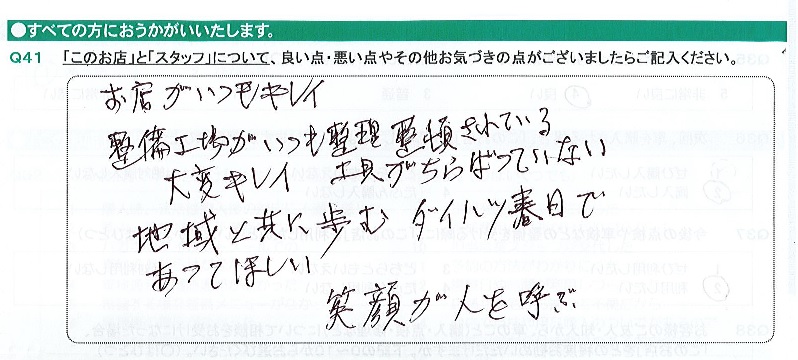 ●すべての方におうかがいいたします。
Q41 「このお店」と「スタッフ」について、良い点・悪い点やその他お気づきの点がございましたらご記入ください。
お店がいつもキレイ
整備工場がいつも整理整頓されている
大変キレイ 工具がちらばっていない
地域と共に歩む ダイハツ春日で
あってほしい
笑顔が人を呼ぶ